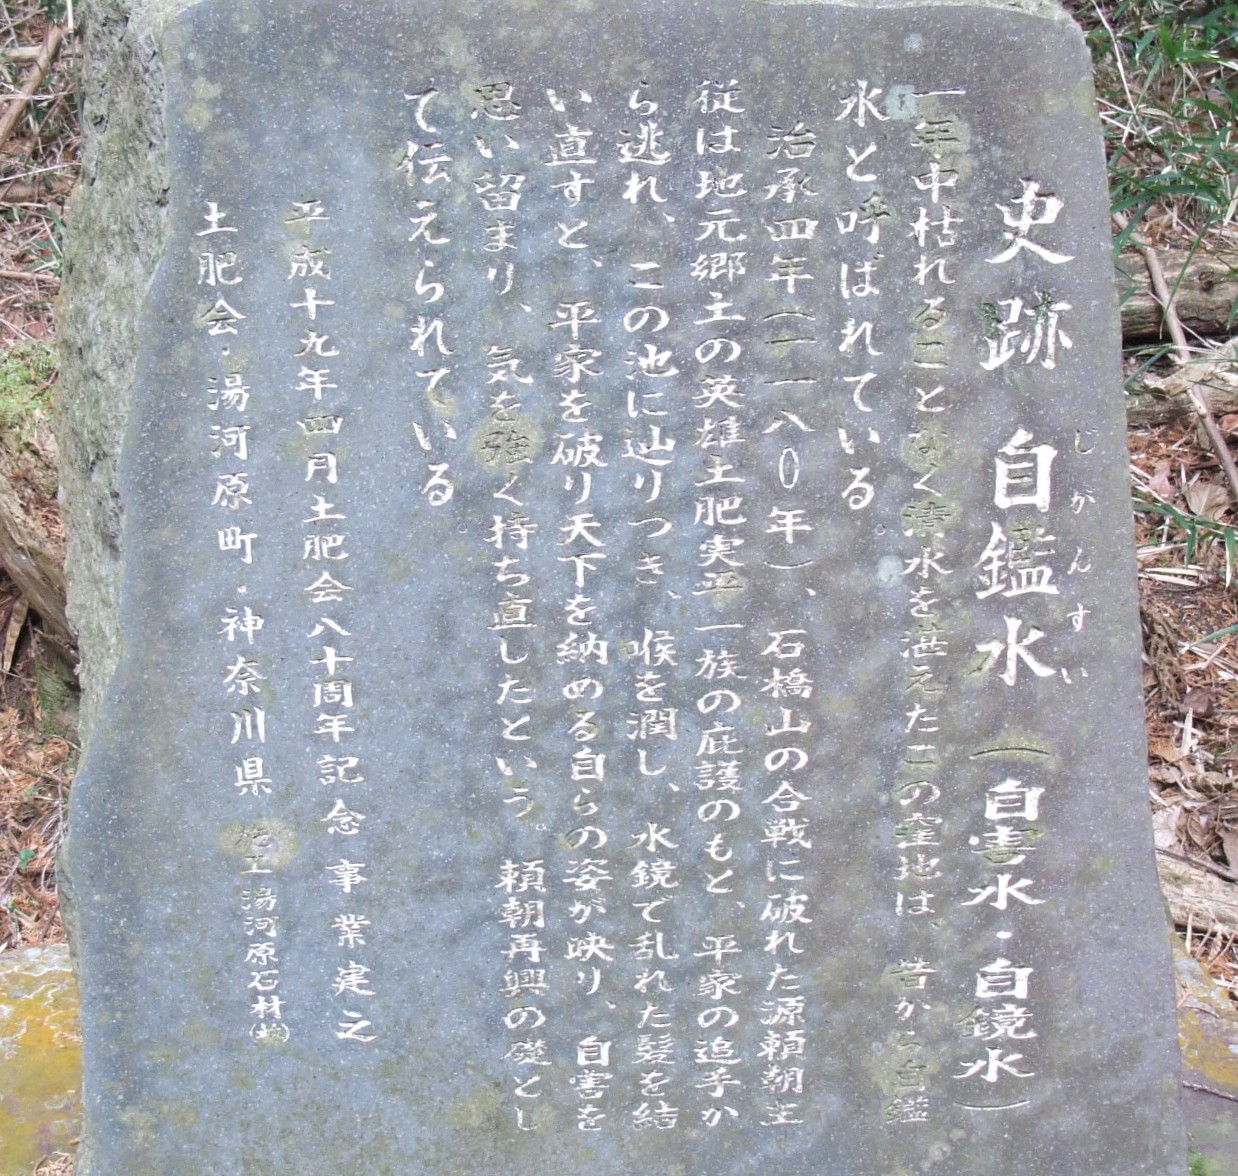 史跡 自鑑水(自害水・自鏡水)
じがんすい
一年中枯れることなく清水を湛えたこの窪地は、昔から自鑑
水と呼ばれている。
治承四年(一一八〇年)、石橋山の合戦に破れた源頼朝主
従は地元郷主の英雄土肥実平一族の庇護のもと、平家の追手か
ら逃れ、この池に辿りつき、喉を潤し、水鏡で乱れた髪を結
い直すと、平家を破り天下を納める自らの姿が映り、自害を
思い留まり、気を強く持ち直したという。頼朝再興の礎とし
て伝えられている。
平成十九年四月土肥会八十周年記念事業建之
土肥会・湯河原町・神奈川県 施工 湯河原石材(株)